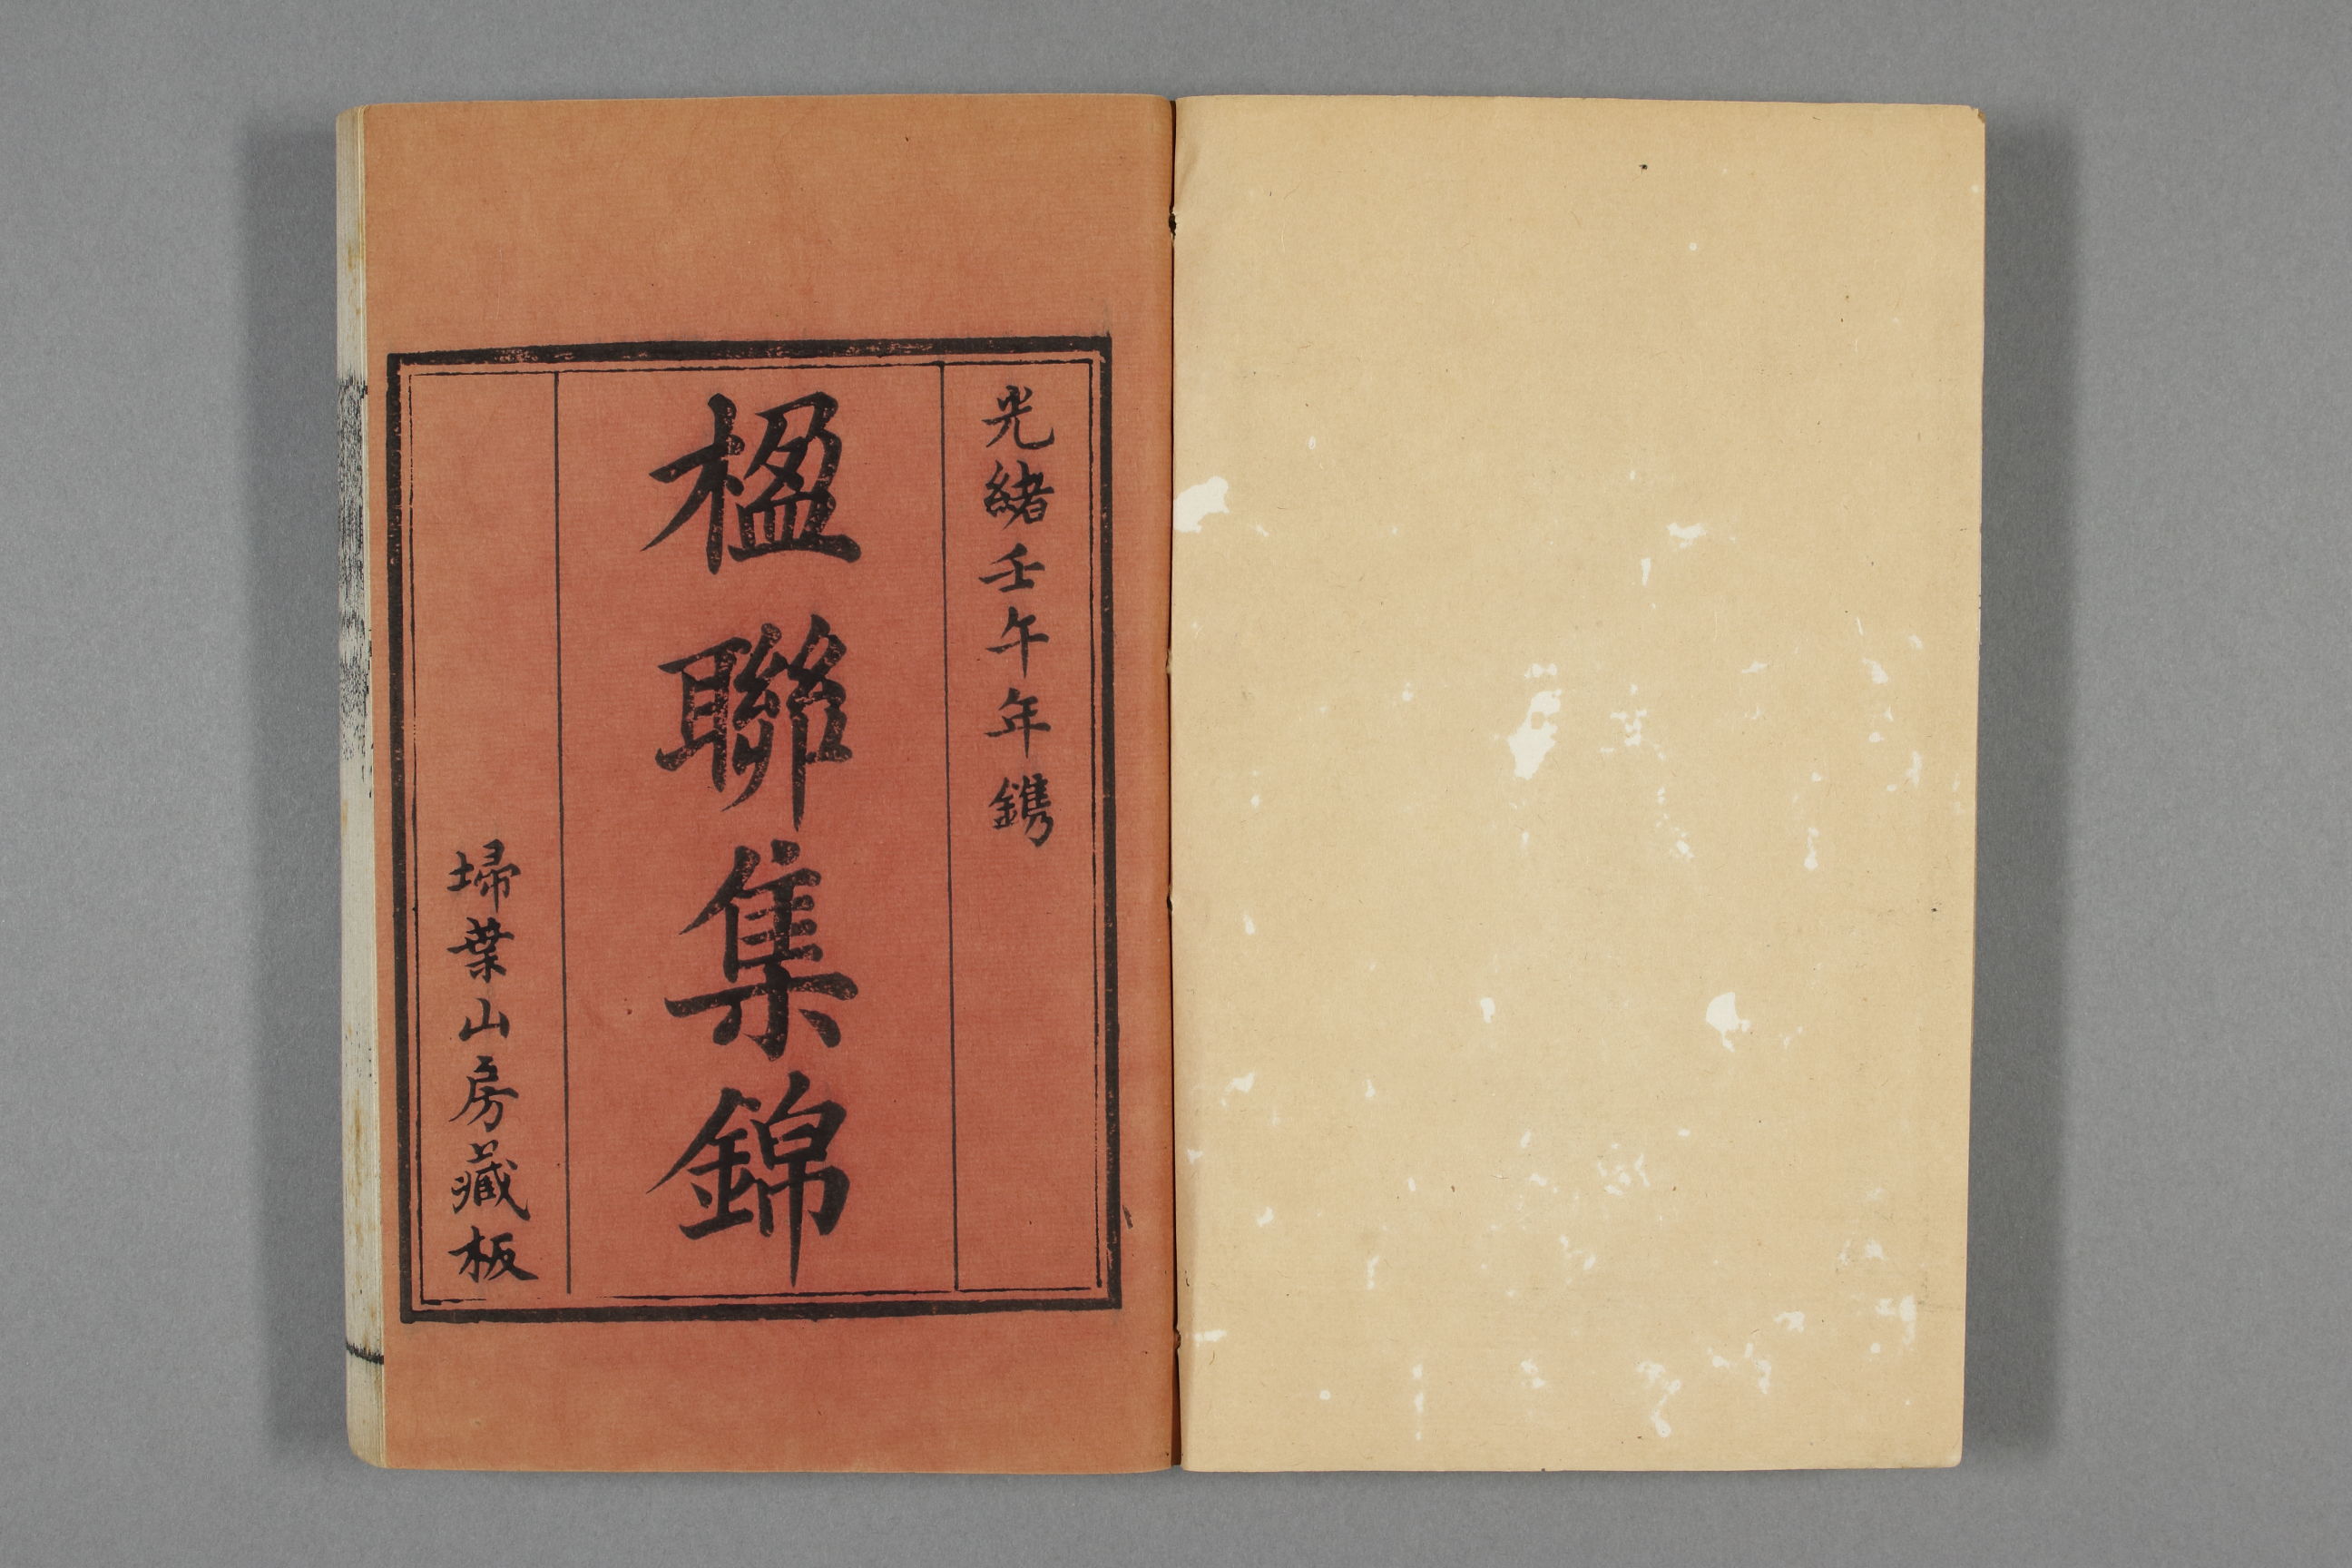 光緒壬午年鐫
楹聯集錦
埽葉山房藏板